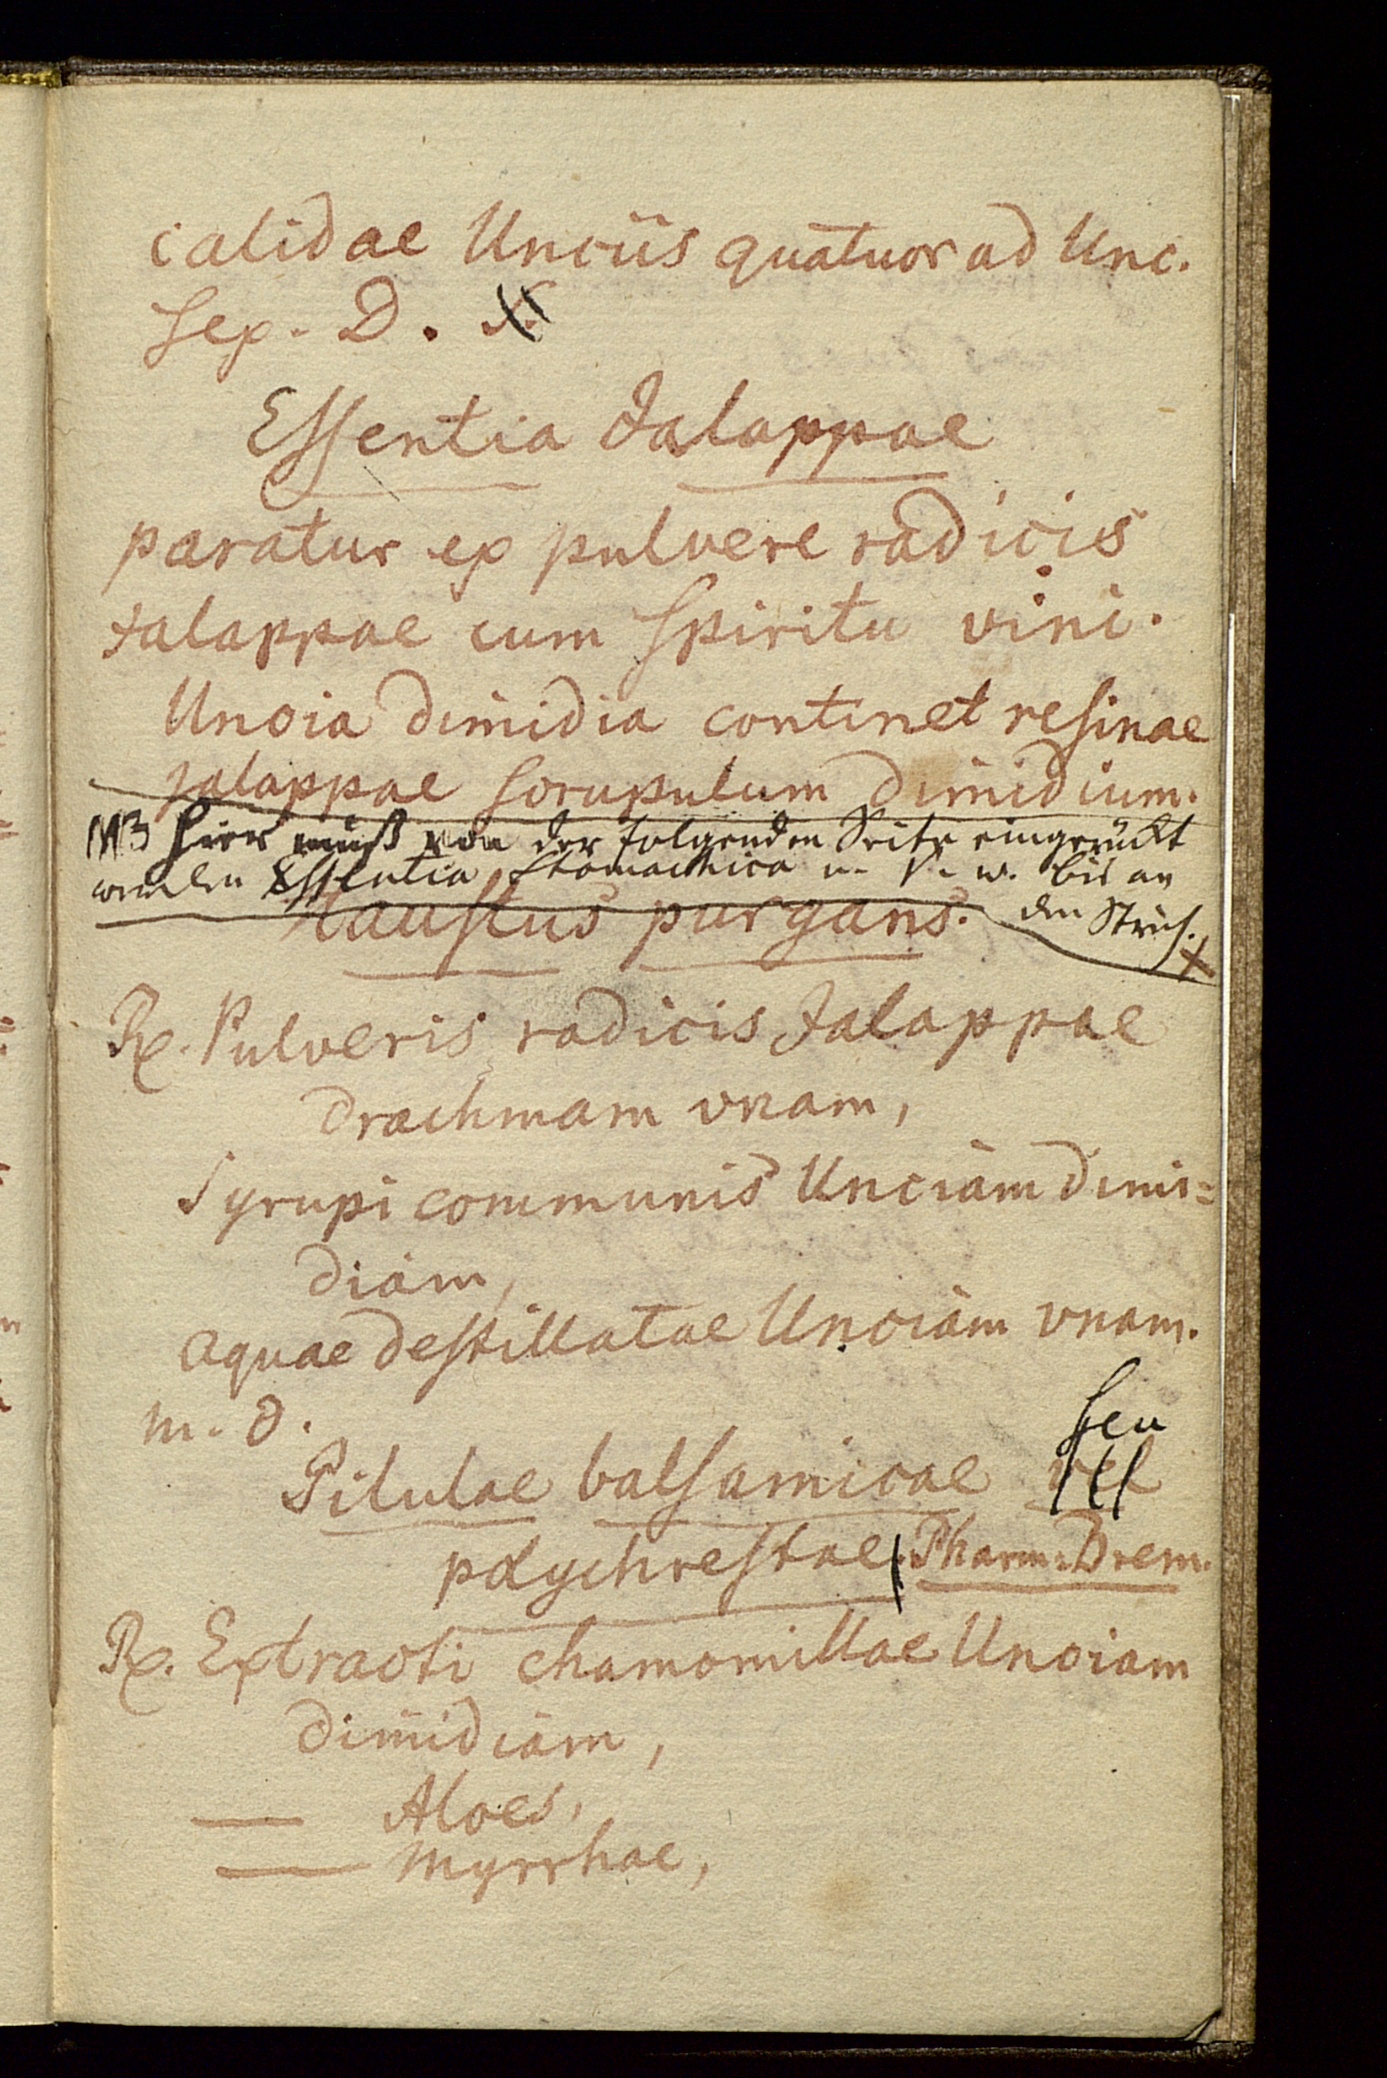 calidae Unciis quatuor ad Unc.
sex. D.
Essentia Jalappae
paratur ex pulvere radicis
Jalappae cum spiritu vini.
Uncia dimidia continet resinae
Jalappae scrupulum dimidium.
NB hier muß von der folgenden Seite eingerückt
werden Essentia Stomachica u. s. w. bis an
den Strich.
Haustus purgans.
Rx. Pulveris radicis Jalappae
drachmam vnam,
Syrupi communis Unciam dimi=
diam,
aquae destillatae Unciam vnam.
m. d.
seu
Pilulae balsamicae vel
polychrestae. Pharm. Brem.
Rx. Extracti chamomillae Unciam
dimidiam,
— Aloes,
— Myrrhae,